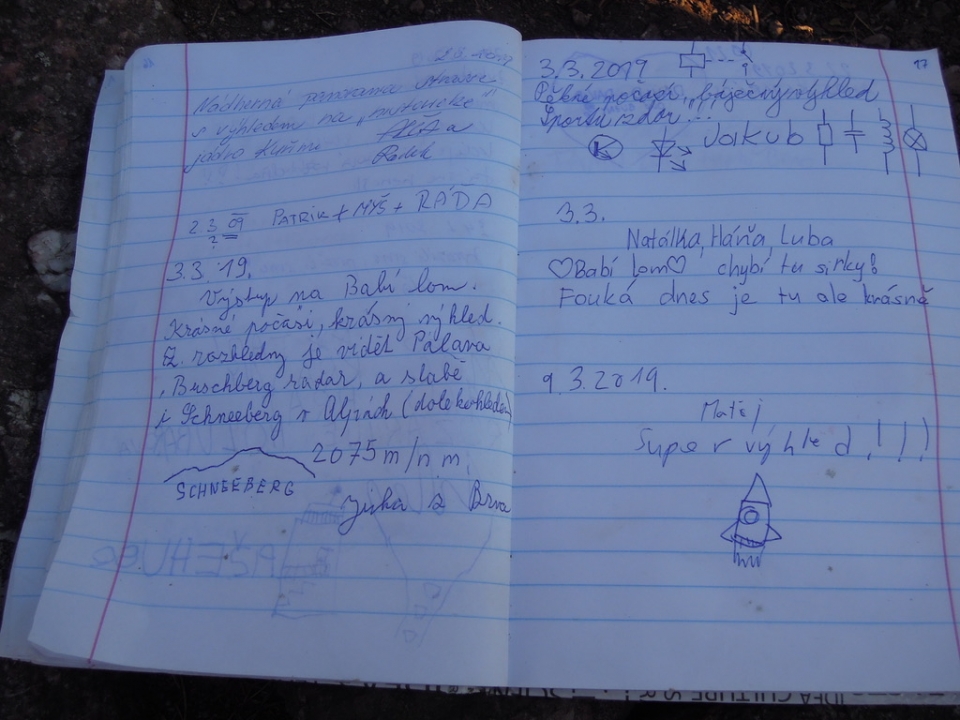 28. 
Nádherná panorama
s výhledem na „
jádro Kuřimi
Radek
2.3. 09 PATRIK + MYŠ + RÁĎA
?
3.3.19.
Výstup na Babí lom.
Krásné počasí, krásný výhled.
Z rozhledny je vidět Pálava
, Buschberg radar, a slabě
i Schneeberg v Alpách (dalekohledem)
2075 m/n m,
SCHNEEBERG
Jirka z Brna
17
3.3.2019
Pěkné počasí, báječný výhled
Sportu zdar...
K Jakub
3.3.
Natálka, Háňa, Luba
♡Babí lom♡ chybí tu sirky!
Fouká dnes je tu ale krásně
9.3.2019.
Matěj
Super výhled!!!